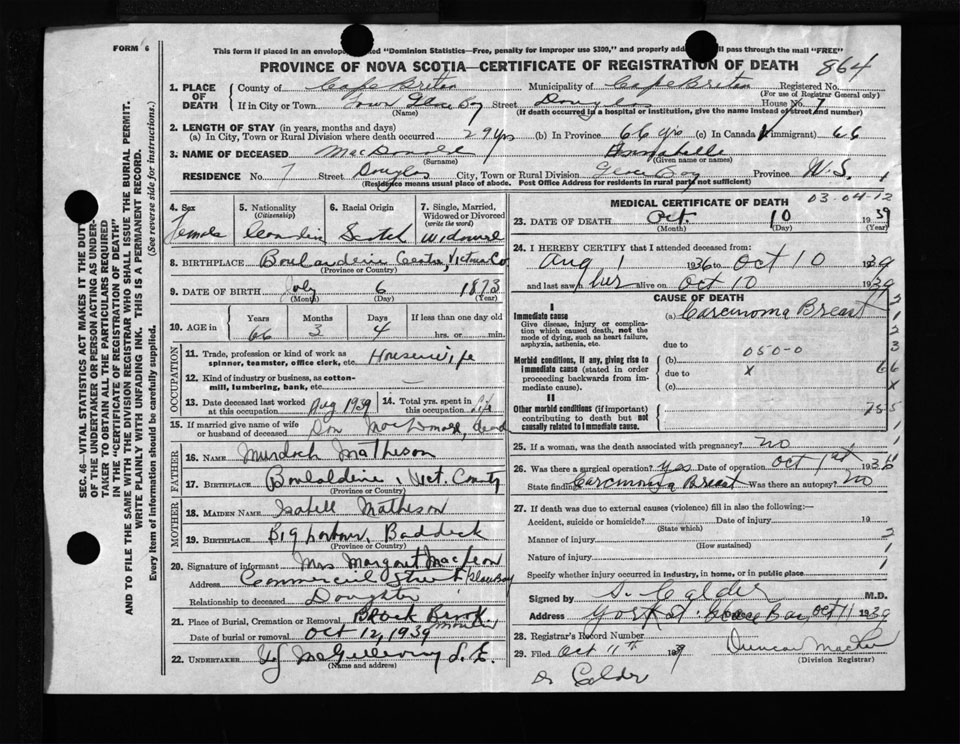 FORM 6
This form if placed in an envelope "Dominion Statistics—Free, penalty for improper use $300," and properly addressed will pass through the mail "FREE"
PROVINCE OF NOVA SCOTIA—CERTIFICATE OF REGISTRATION OF DEATH 864
1. PLACE OF DEATH County of Cape Breton Municipality of Cape Breton Registered No.
(For use of Registrar General only)
If in City or Town Town Glace Bay Street Douglas House No. 7
(Name) (If death occurred in a hospital or institution, give the name instead of street and number)
2. LENGTH OF STAY (in years, months and days)
(a) In City, Town or Rural Division where death occurred 29 yrs (b) In Province 66 yrs (c) In Canada (if immigrant) 66
3. NAME OF DECEASED MacDonald Annabelle
(Surname) (Given name or names)
RESIDENCE No. 7 Street Douglas City, Town or Rural Division Glace Bay Province N.S.
(Residence means usual place of abode. Post Office Address for residents in rural parts not sufficient)
4. Sex Female
5. Nationality (Citizenship) Canadian
6. Racial Origin Scotch
7. Single, Married, Widowed or Divorced (write the word) Widowed
8. BIRTHPLACE Boularderie Center, Vict Co
(Province or Country)
9. DATE OF BIRTH July 6 1873
(Month) (Day) (Year)
10. AGE in Years Months Days If less than one day old
66 3 4 hrs. or min.
OCCUPATION
11. Trade, profession or kind of work as spinner, teamster, office clerk, etc. Housewife
12. Kind of industry or business, as cotton-mill, lumbering, bank, etc. —
13. Date deceased last worked at this occupation Aug 1939
14. Total yrs. spent in this occupation Life
15. If married give name of wife or husband of deceased Dan MacDonald, dead
FATHER
16. NAME Murdoch Matheson
17. BIRTHPLACE Boulardrie, Vict. County
(Province or Country)
MOTHER
18. MAIDEN NAME Isabell Matheson
19. BIRTHPLACE Big Harbour, Baddeck
(Province or Country)
20. Signature of informant Mrs Margaret MacLean
Address Commercial Street Glace Bay
Relationship to deceased Daughter
21. Place of Burial, Cremation or Removal Black Brook
Date of burial or removal Oct 12, 1939
22. UNDERTAKER
(Name and address)
MEDICAL CERTIFICATE OF DEATH
03-04-12
23. DATE OF DEATH Oct 10 1939
(Month) (Day) (Year)
24. I HEREBY CERTIFY that I attended deceased from:
Aug 1 1936 to Oct 10 1939
and last saw her alive on Oct 10 1939
CAUSE OF DEATH
I
Immediate cause (a) Carcinoma Breast
Give disease, injury or complication which caused death, not the mode of dying, such as heart failure, asphyxia, asthenia, etc.
due to
050-0
Morbid conditions, if any, giving rise to immediate cause (stated in order proceeding backwards from immediate cause). (b)
due to X
(c)
II
Other morbid conditions (if important) contributing to death but not causally related to immediate cause.
25. If a woman, was the death associated with pregnancy? no
26. Was there a surgical operation? Yes Date of operation Oct 1st 1936
State findings Carcinoma Breast Was there an autopsy? No
27. If death was due to external causes (violence) fill in also the following:—
Accident, suicide or homicide? Date of injury 19
(State which)
Manner of injury
(How sustained)
Nature of injury
Specify whether injury occurred in industry, in home, or in public place
Signed by A. Calder M.D.
Address York St. Glace Bay Oct 11 1939
28. Registrar's Record Number
29. Filed Oct 11th 1939 Duncan
(Division Registrar)
Dr Calder
SEC. 46—VITAL STATISTICS ACT MAKES IT THE DUTY OF THE UNDERTAKER OR PERSON ACTING AS UNDERTAKER TO OBTAIN ALL THE PARTICULARS REQUIRED IN THE "CERTIFICATE OF REGISTRATION OF DEATH" AND TO FILE THE SAME WITH THE DIVISION REGISTRAR WHO SHALL ISSUE THE BURIAL PERMIT.
WRITE PLAINLY WITH UNFADING INK. THIS IS A PERMANENT RECORD.
Every item of information should be carefully supplied. (See reverse side for instructions.)